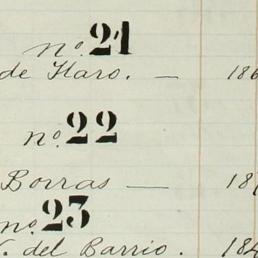 nº 21
de Haro. — 186
nº 22
Borras — 18
nº 23
V. del Barrio. 184